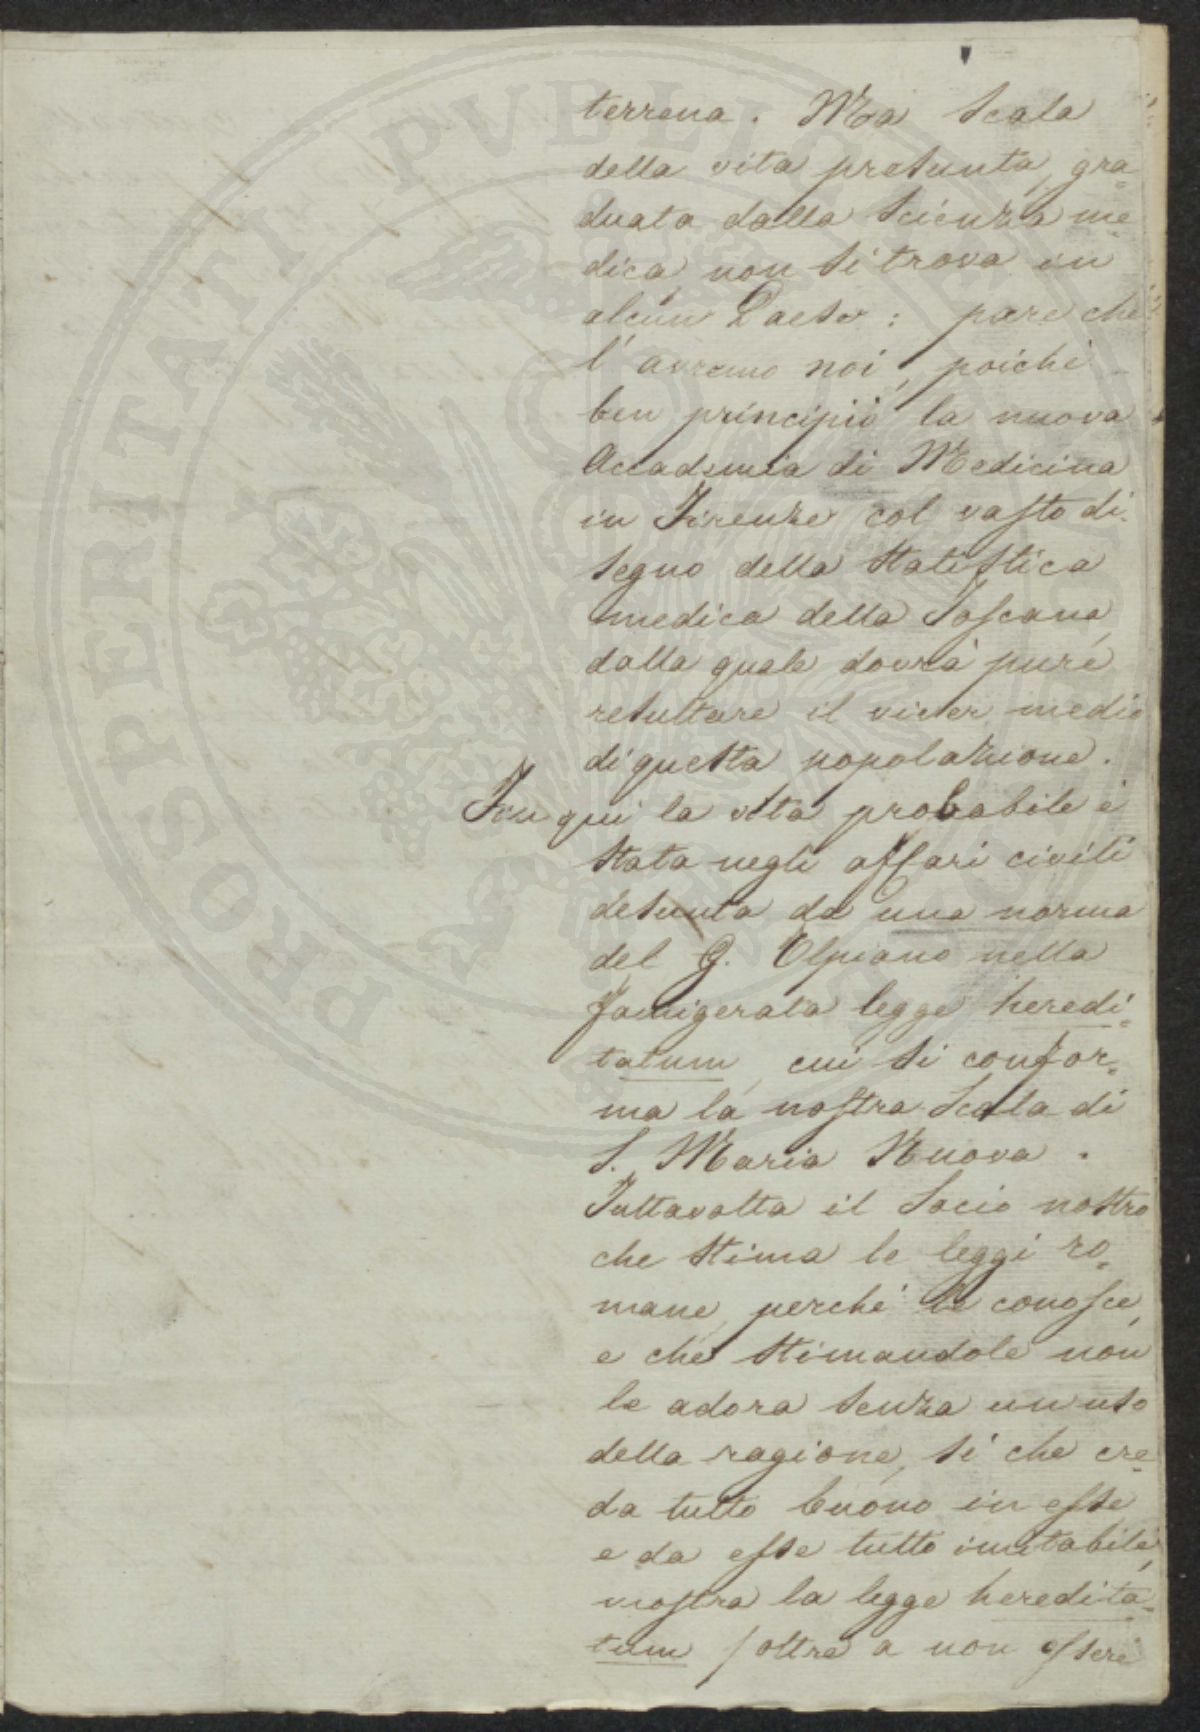 terrena. Ma Scala
della vita presunta, gra=
duata dalla Scienza me=
dica, non si trova in
alcun Paese: pare che
l'avremo noi, poichè
ben principiò la nuova
Accademia di Medicina
in Firenze col vasto di=
segno della Statistica
medica della Toscana,
dalla quale dovrà pure
resultare il viver medio
di questa popolazione.
Fin qui la vita probabile è
stata negli affari civili
desunta da una norma
del G. Ulpiano nella
famigerata legge heredi=
tatum, cui si confor=
ma la nostra Scala di
S. Maria Nuova.
Tuttavolta il Socio nostro
che stima le leggi ro=
mane, perchè le conosce,
e che stimandole non
le adora senza un uso
della ragione, sì che cre=
da tutto buono in esse
e da esse tutto imitabile,
mostra la legge heredita=
tum (oltre a non essere
PROSPERITATI PVBLICAE